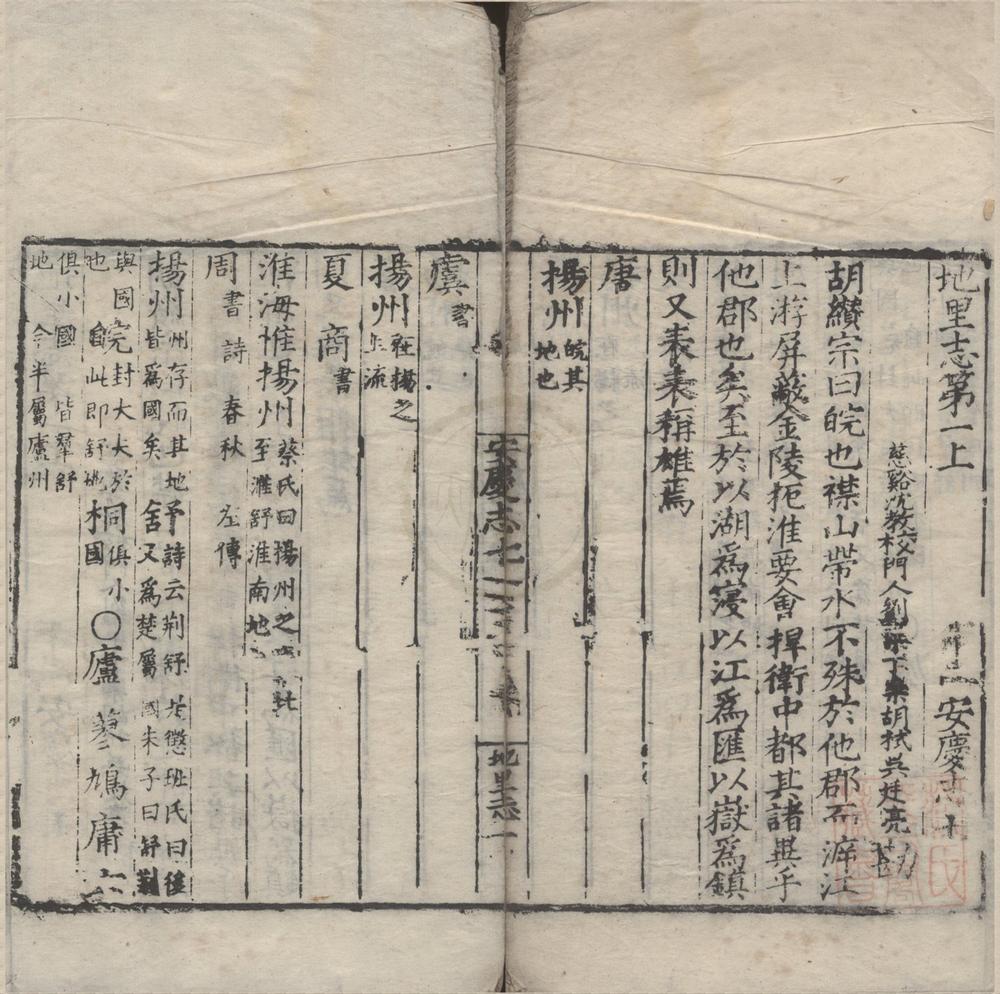 地里志第一上　安慶志十
慈谿沈教校門人劉　胡栻吳廷亮
胡纘宗曰皖也襟山帶水不殊於他郡而游江
上游屏蔽金陵扼淮要會捍衛中都其諸異乎
他郡也矣至於以湖爲寖以江爲匯以嶽爲鎮
則又表表稱雄焉
唐
楊州皖其地也
安慶志七
地里志一
虞書
揚州在揚之上流
夏商書
淮海惟揚州蔡氏曰揚州之至淮舒淮南地
周書詩春秋左傳
揚州州存而其地皆爲國矣舒詩云荆舒是懲班氏曰後又爲楚屬國朱子曰舒荆
與國皖封大夫於此即舒地也桐俱小國○廬蓼鳩庸六
俱小國皆羣舒地今半屬廬州